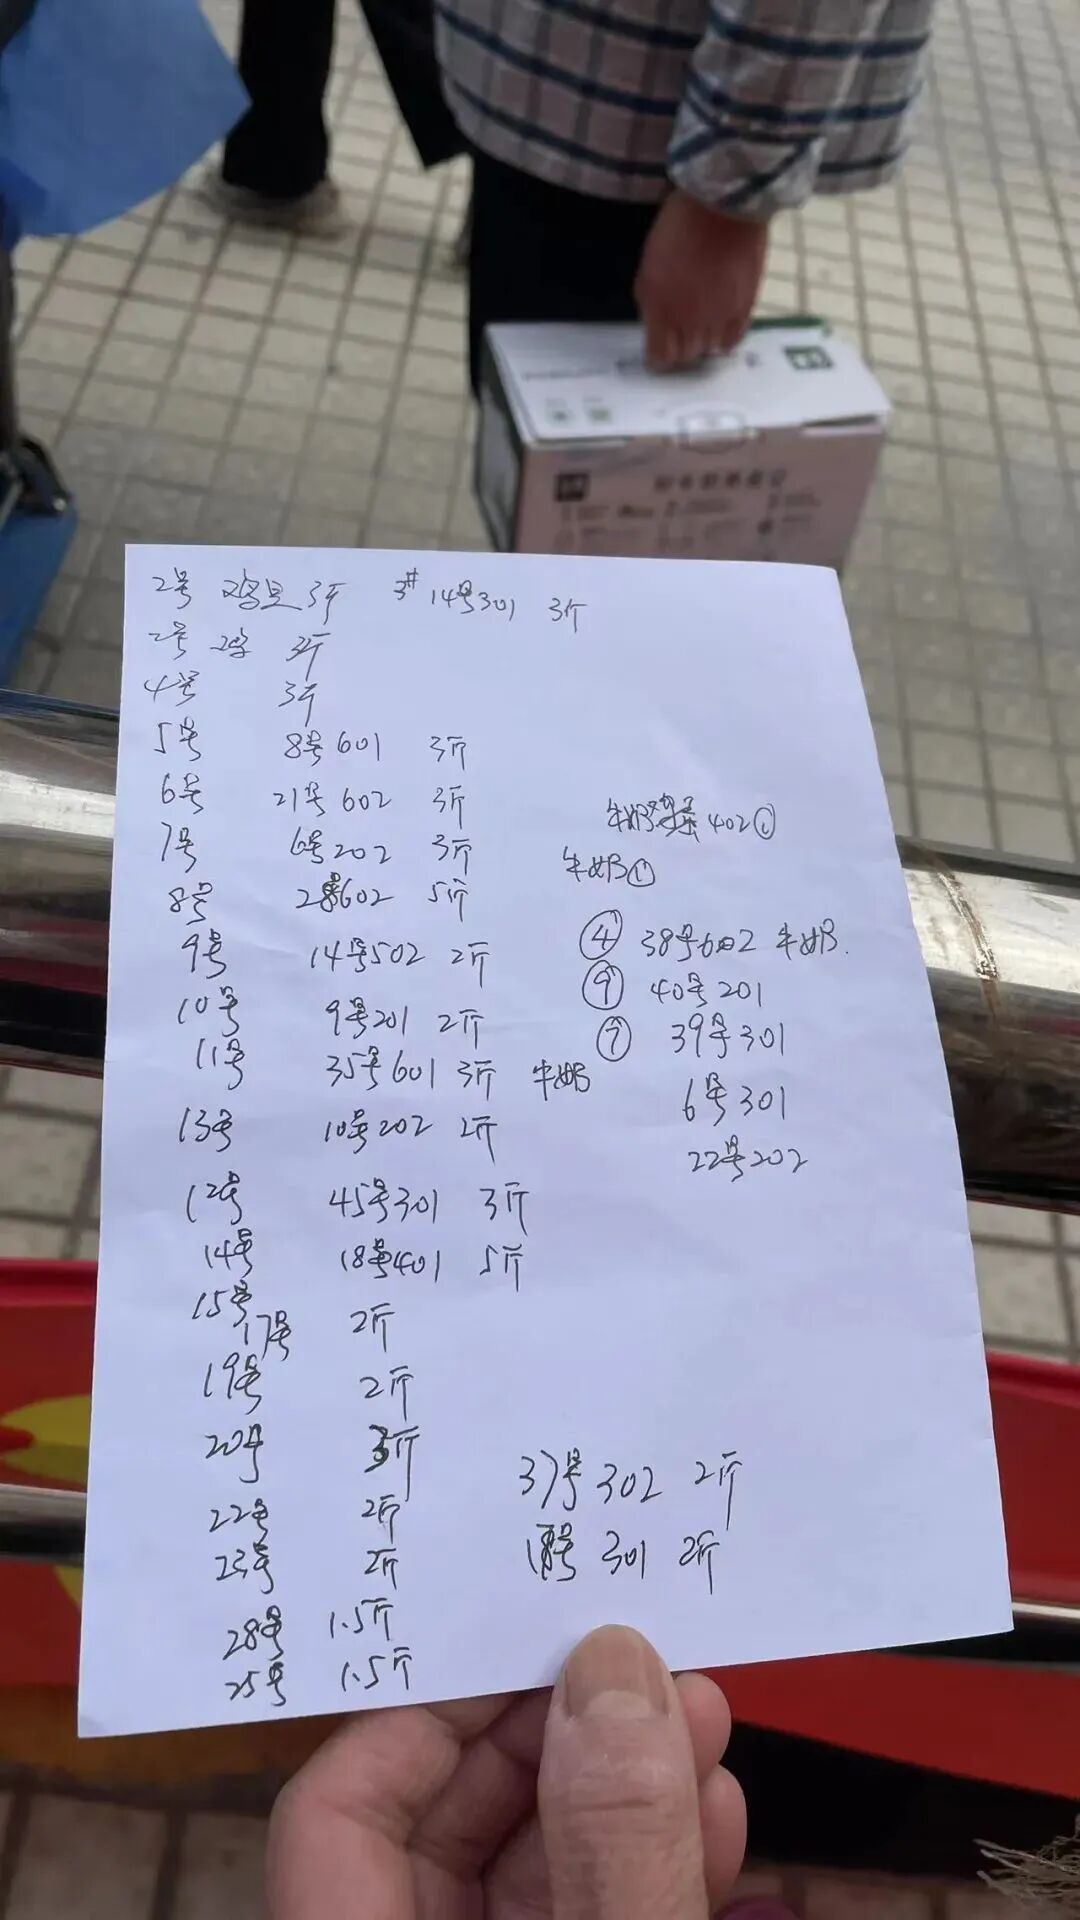 2号 鸡旦 3斤 3# 14号301 3斤
2号 鸡 3斤
4号 3斤
5号 8号601 3斤
6号 21号602 3斤
7号 6号202 3斤
8号 28号602 5斤
9号 14号502 2斤
10号 9号201 2斤
11号 35号601 3斤 牛奶
13号 10号202 2斤
12号 45号301 3斤
14号 18号401 5斤
15号
17号 2斤
19号 2斤
20号 3斤
22号 2斤
23号 2斤
28号 1.5斤
25号 1.5斤
牛奶 402①
牛奶①
④ 38号602 牛奶.
⑨ 40号201
⑦ 39号301
6号301
22号202
37号302 2斤
301 2斤